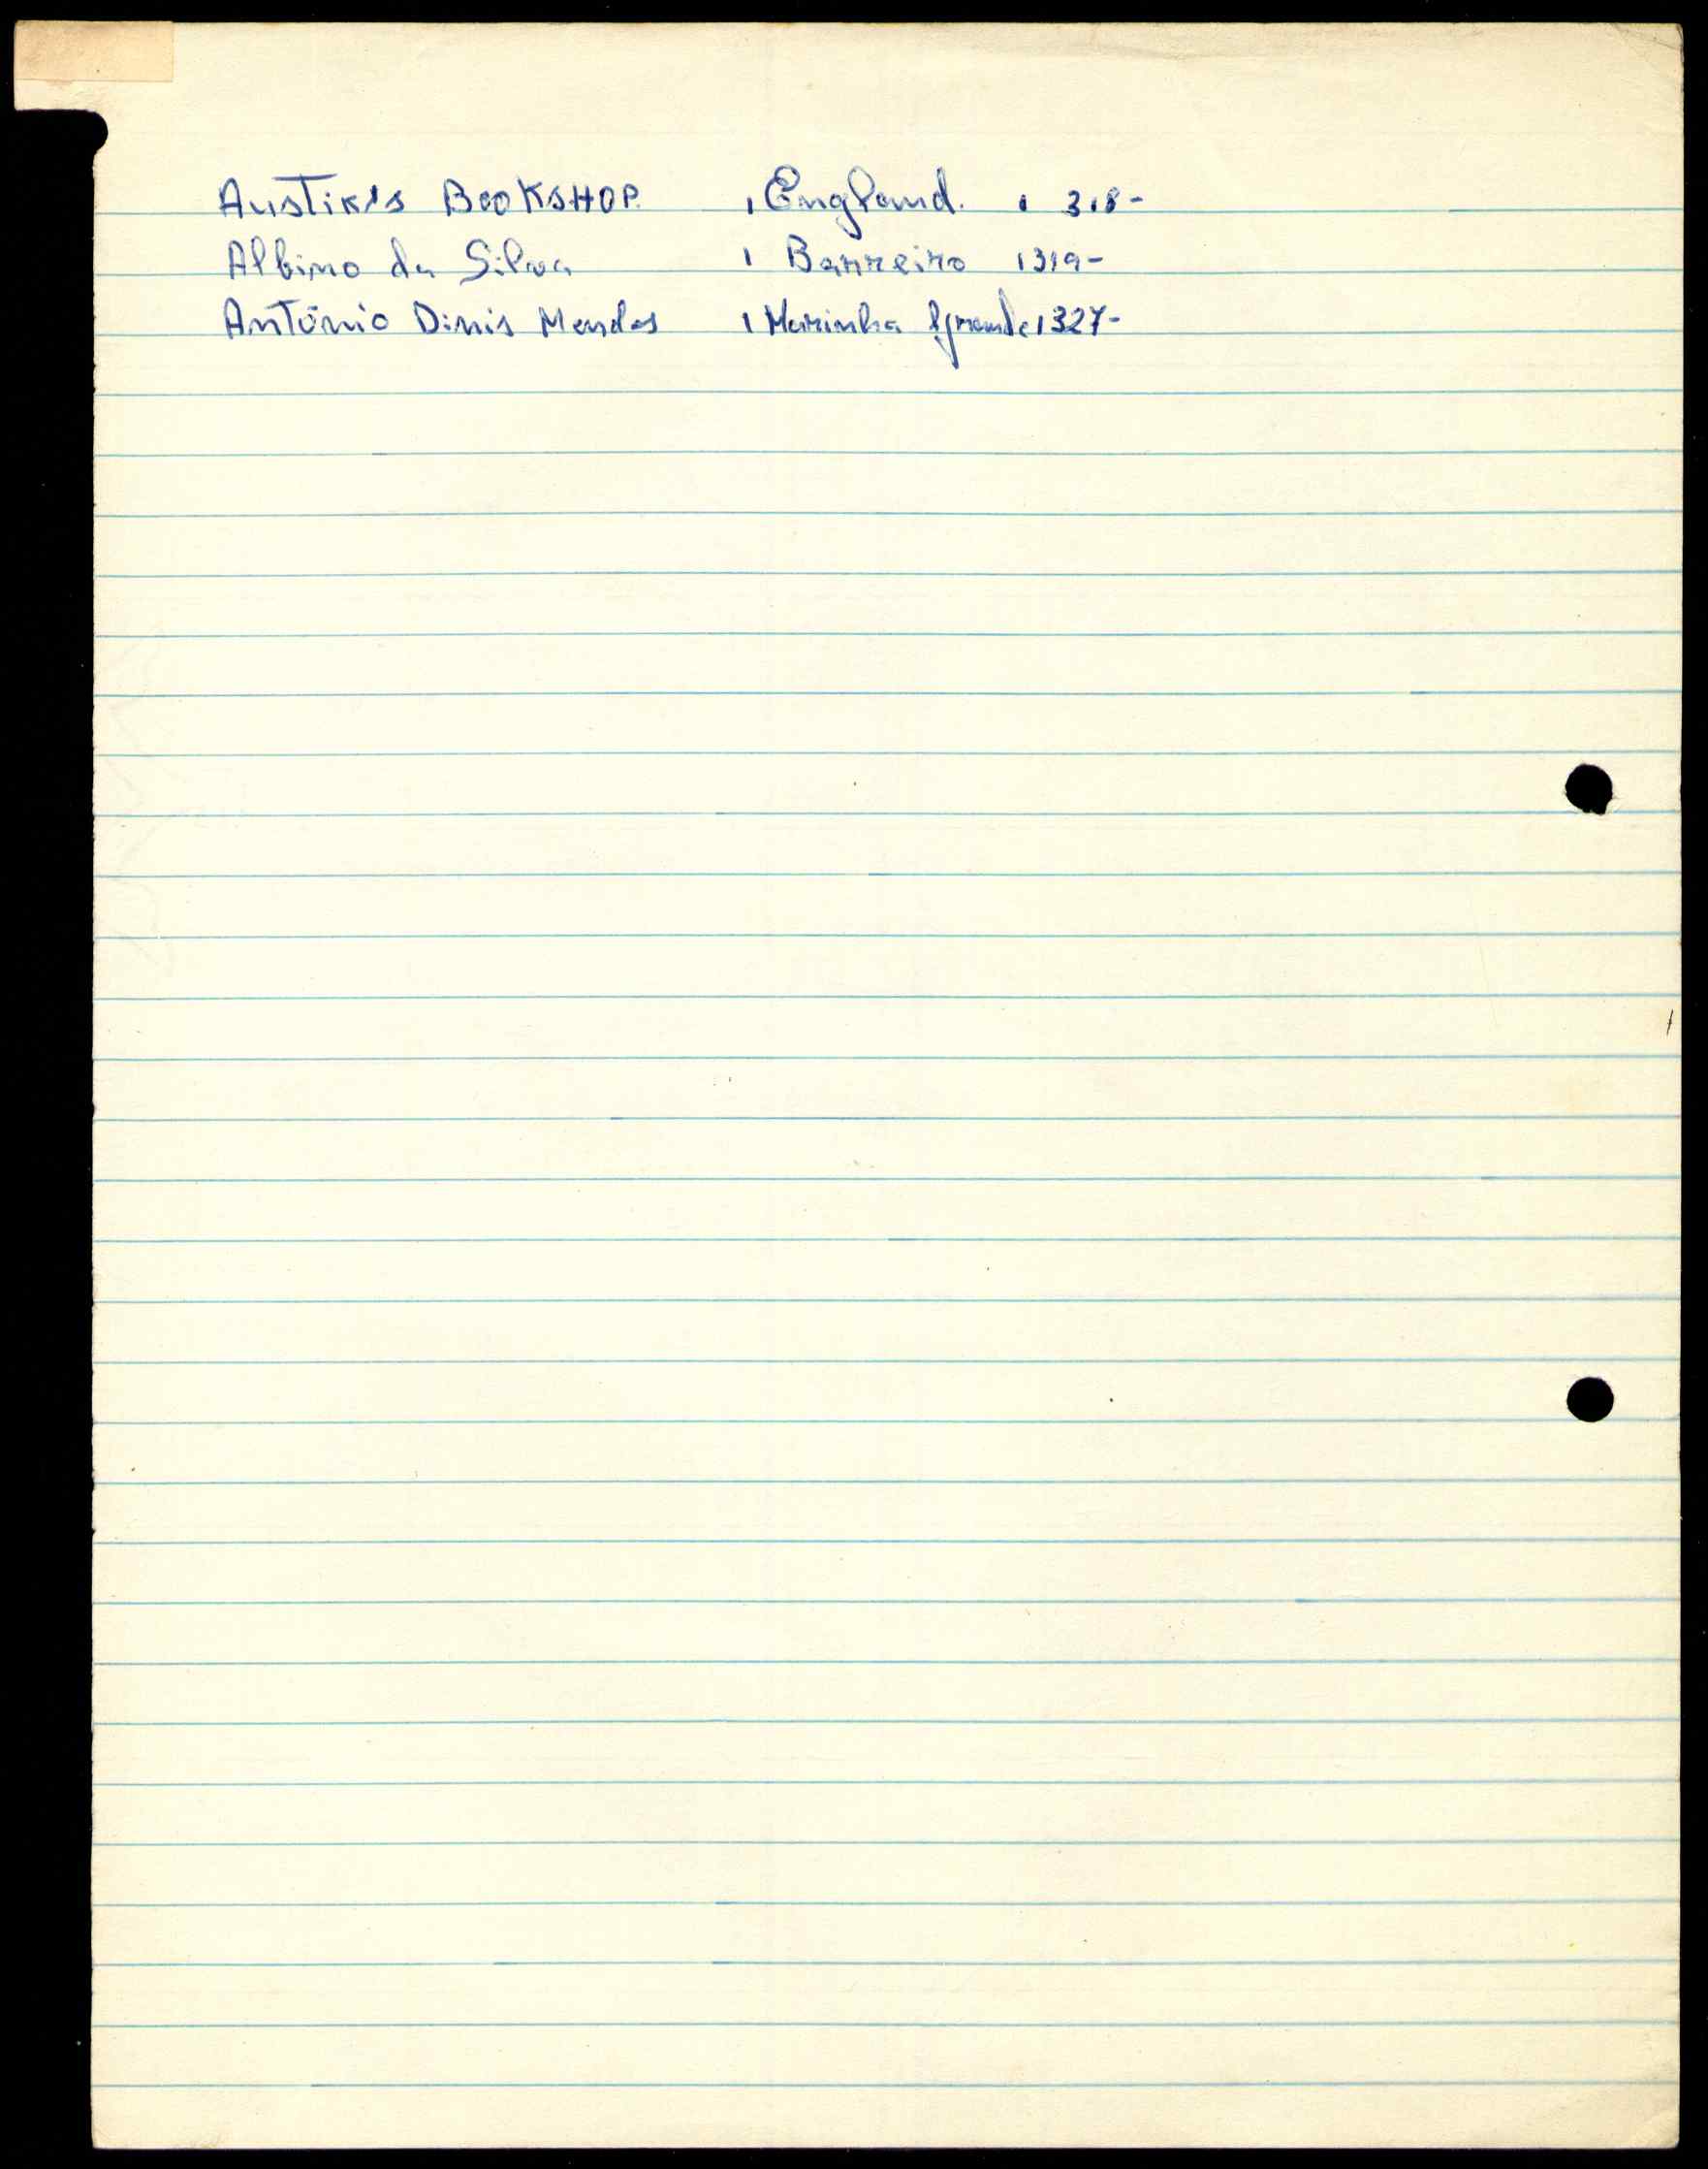 Austik's BookSHOP. , England. , 318-
Albino da Silva , Barreiro , 319-
António Dinis Mendes , Marinha Grande , 327-